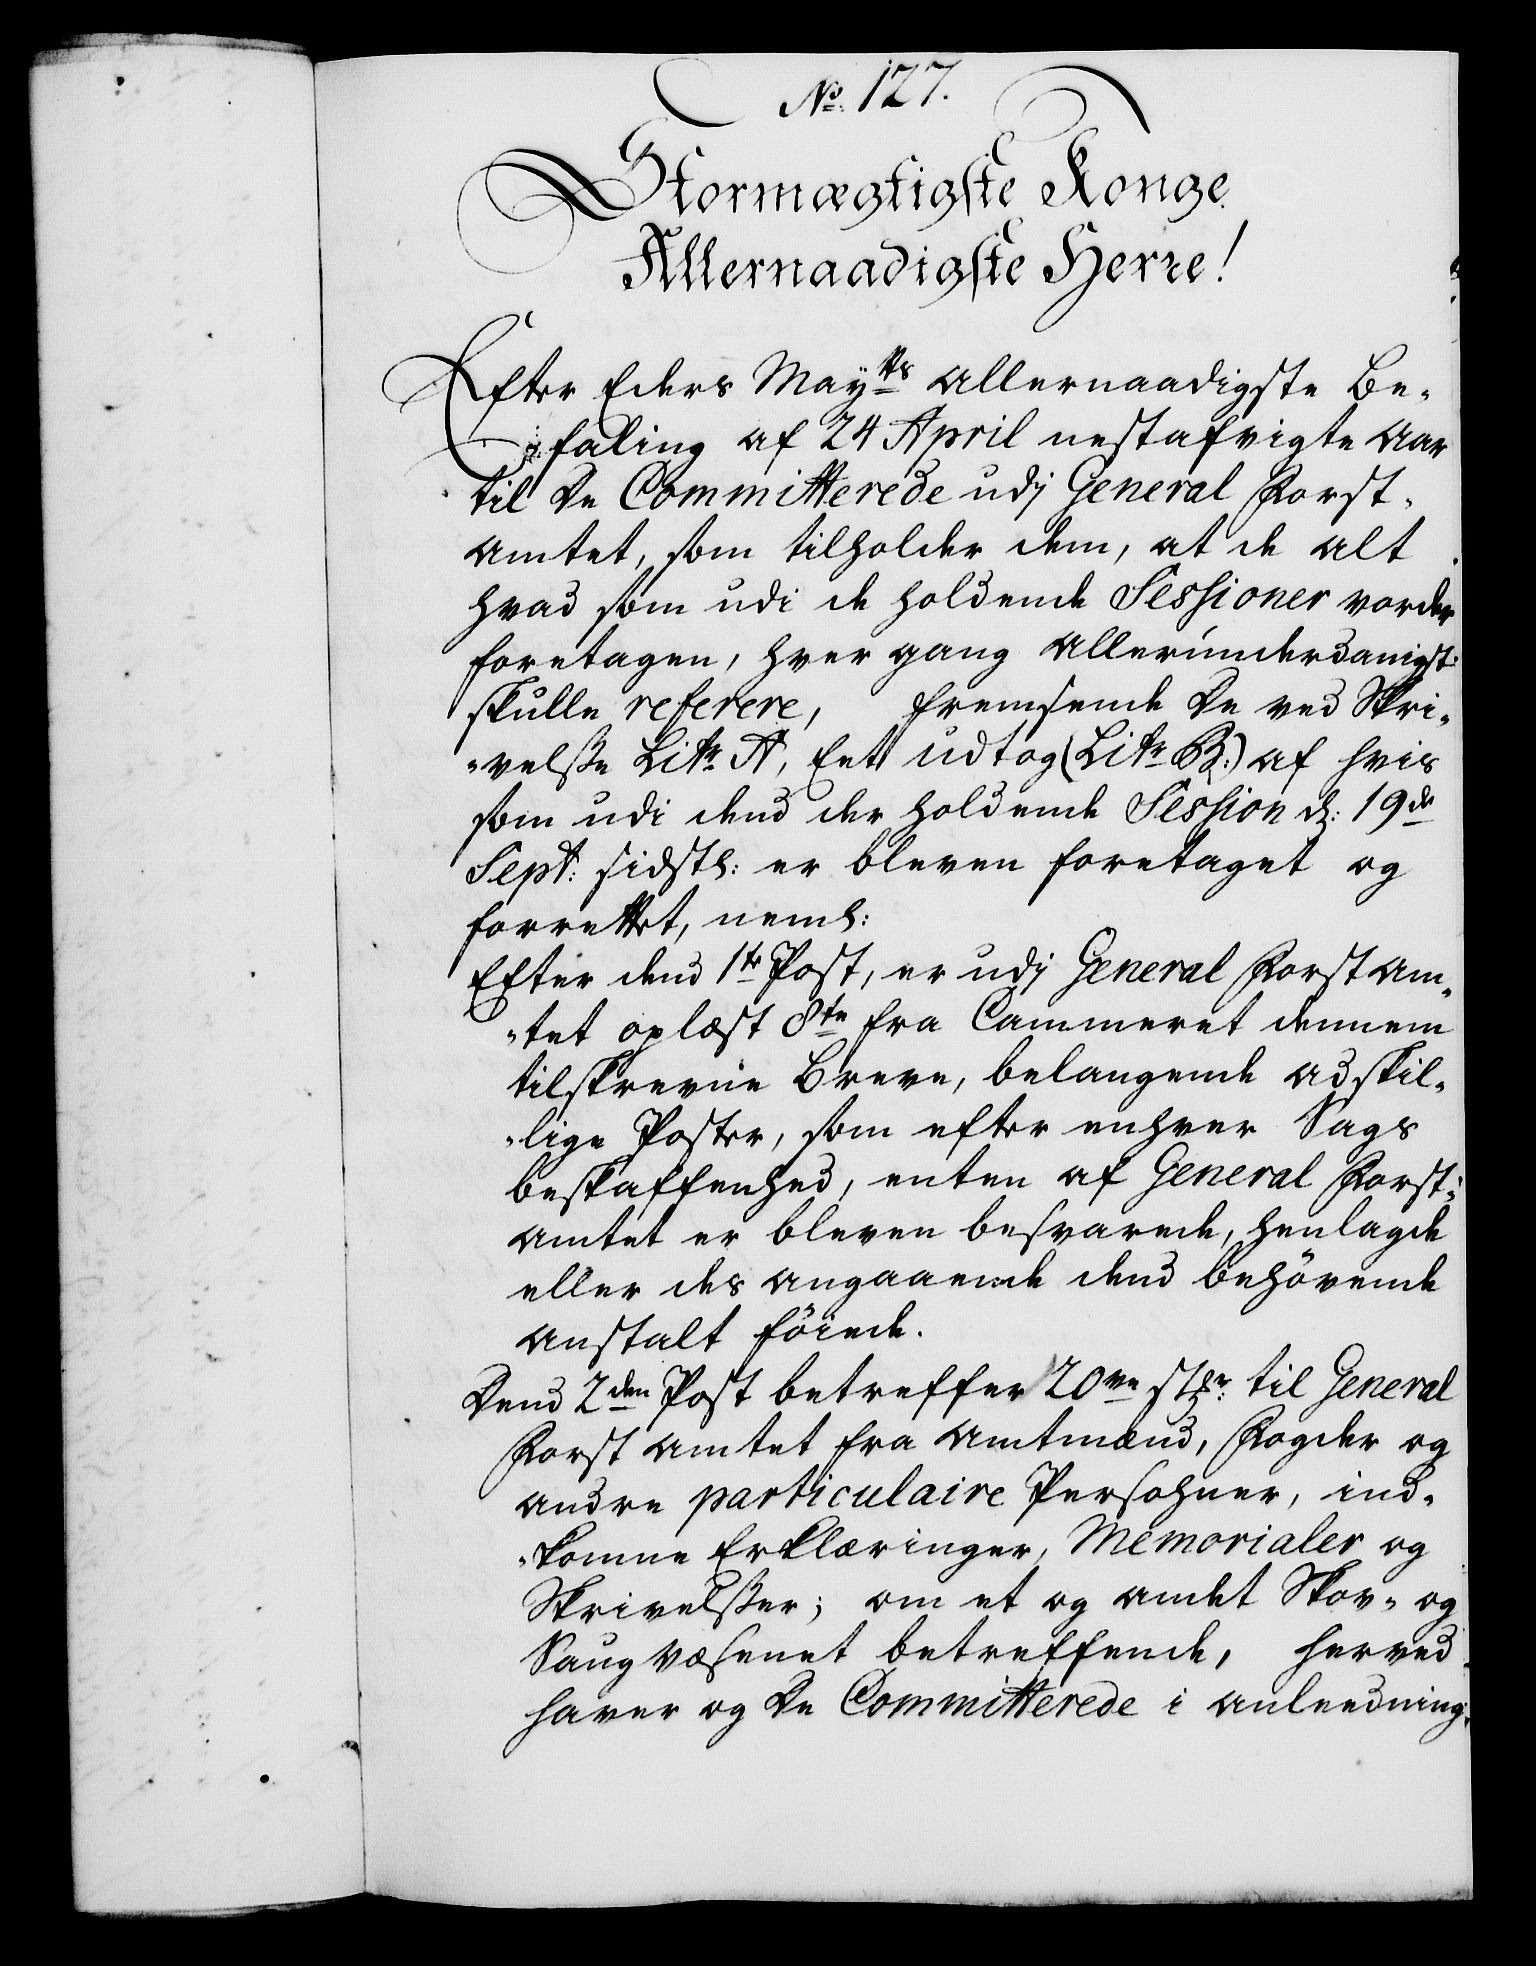 No. 127.
Stormægtigste Konge
Allernaadigste Herre!
Efter Eders Maytts Allernaadigste Be-
faling af 24 April nestafvigte Aar
til De Committerede udj General Forst-
Amtet, som tilholder dem, at de alt
hvad som udi de holdende Sessioner vorder
foretagen, hver gang Allerunderdanigst
skulle referere, fremsende De ved Skri-
-velsse Litr A, Eet Udtog (Litr B:) af hvis
som udi dend der holdende Session d: 19de
Sept: sidstl: er bleven foretaget og
forrettet, neml:
Efter dend 1te Post, er udj General Forst Am-
-tet oplæst 8te fra Cammeret dennem
tilskrevne Breve, belangende adskil-
-lige Poster, som efter enhver Sags
beskaffenhed, enten af General Forst-
Amtet er bleven besvarede, henlagde
eller des angaaende dend behövende
Anstalt föiede.
Dend 2den Post betreffer 20ve stkr: til General
Forst Amtet fra Amtmænd, Fogder og
andre particulaire Persohner, ind-
-komne Erklæringer, Memorialer og
Skrivelsser; om et og andet Skov- og
Saugvæsenet betreffende, herved
haver og De Committerede i anleedning